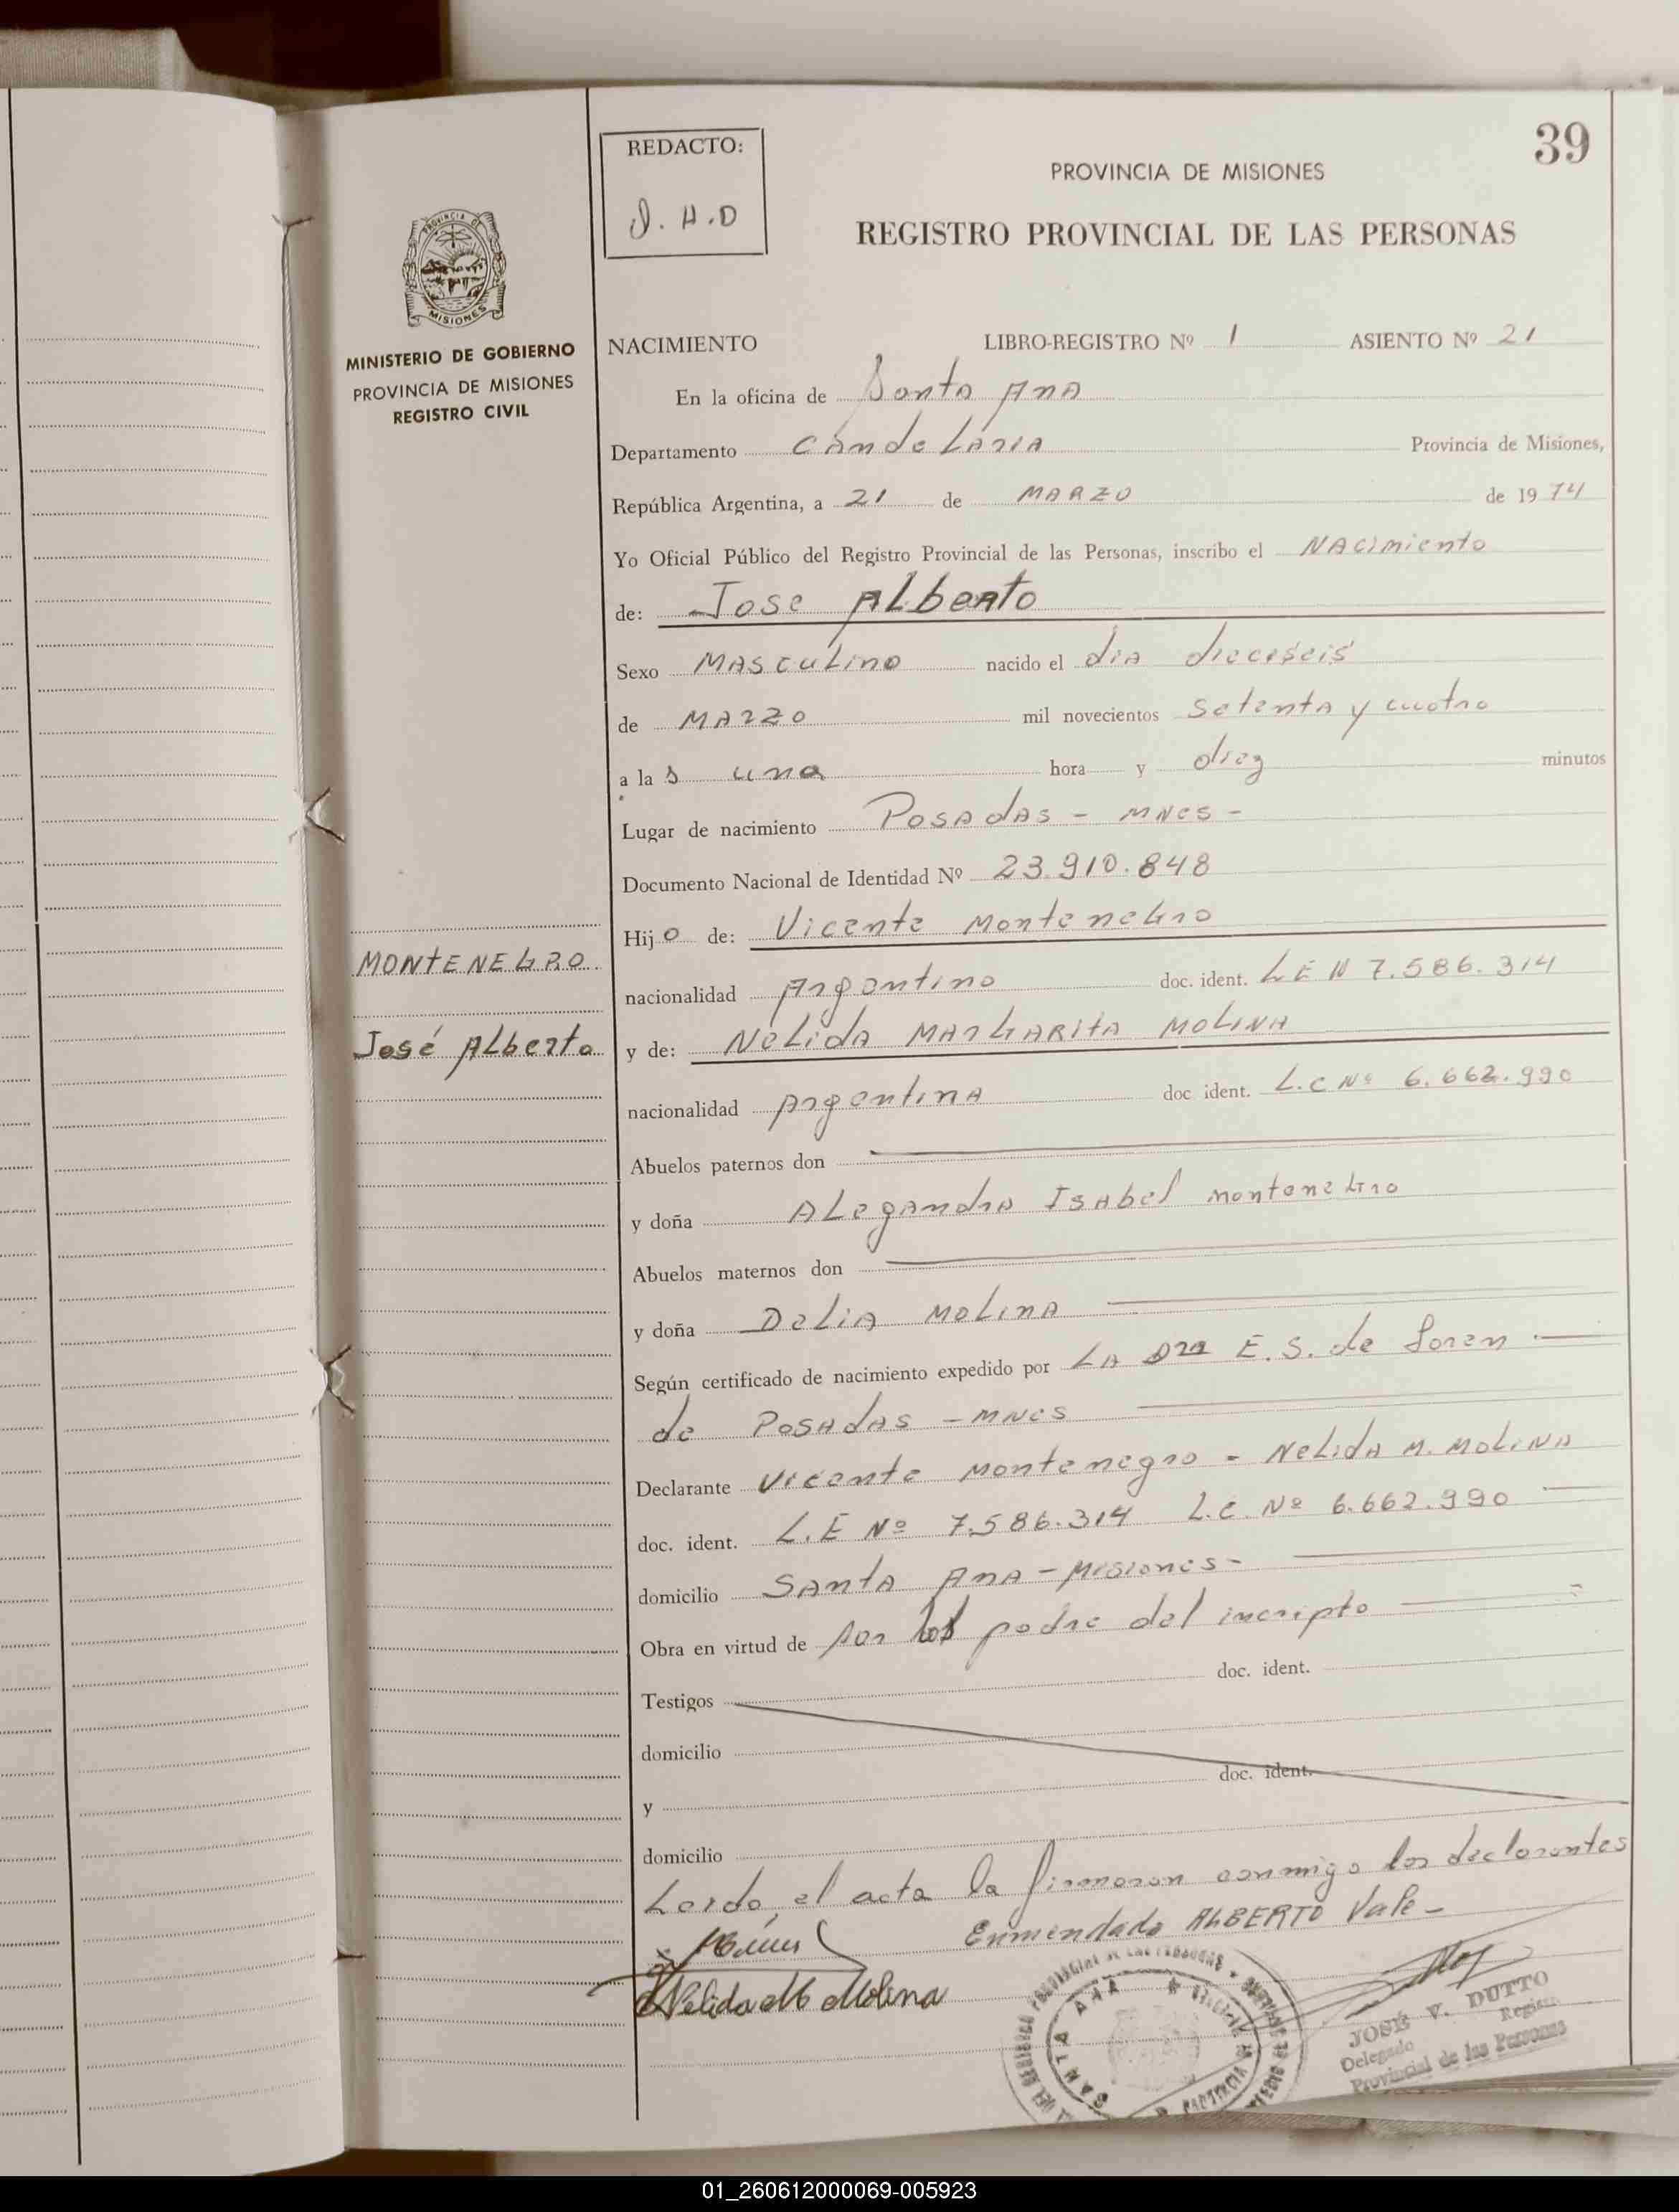 39
REDACTO:
J. H. D
PROVINCIA DE MISIONES
REGISTRO PROVINCIAL DE LAS PERSONAS
PROVINCIA DE
MISIONES
MINISTERIO DE GOBIERNO
PROVINCIA DE MISIONES
REGISTRO CIVIL
NACIMIENTO LIBRO-REGISTRO Nº 1 ASIENTO Nº 21
En la oficina de Santa Ana
Departamento Candelaria Provincia de Misiones,
República Argentina, a 21 de MARZO de 1974
Yo Oficial Público del Registro Provincial de las Personas, inscribo el NAcimiento
de: Jose Alberto
Sexo MAsculino nacido el dia dieciseis
de MARZO mil novecientos setenta y cuatro
a las una hora y diez minutos
Lugar de nacimiento POSADAS - MNES -
Documento Nacional de Identidad Nº 23.910.848
Hijo de: Vicente Montenegro
MONTENEGRO
nacionalidad Argentino doc. ident. L E N 7.586.314
José Alberto
y de: Nelida MARGARITA MOLINA
nacionalidad Argentina doc ident. L.C Nº 6.662.990
Abuelos paternos don
y doña ALegandra Isabel montenegro
Abuelos maternos don
y doña Delia Molina
Según certificado de nacimiento expedido por LA Dra E. S. de Loren
de POSADAS - MNES
Declarante Vicente Montenegro - Nelida M. MOLINA
doc. ident. L.E Nº 7.586.314 L.C. Nº 6.662.990
domicilio SANTA ANA - Misiones -
Obra en virtud de por los padre del incripto
doc. ident.
Testigos
domicilio
doc. ident.
y
domicilio
Leido, el acta la firmaron conmigo los declarantes
Enmendado ALBERTO Vale -
Nelida M Molina
SANTA ANA
JOSÉ V. DUTTO
Delegado
Provincial de las Personas
01_260612000069-005923